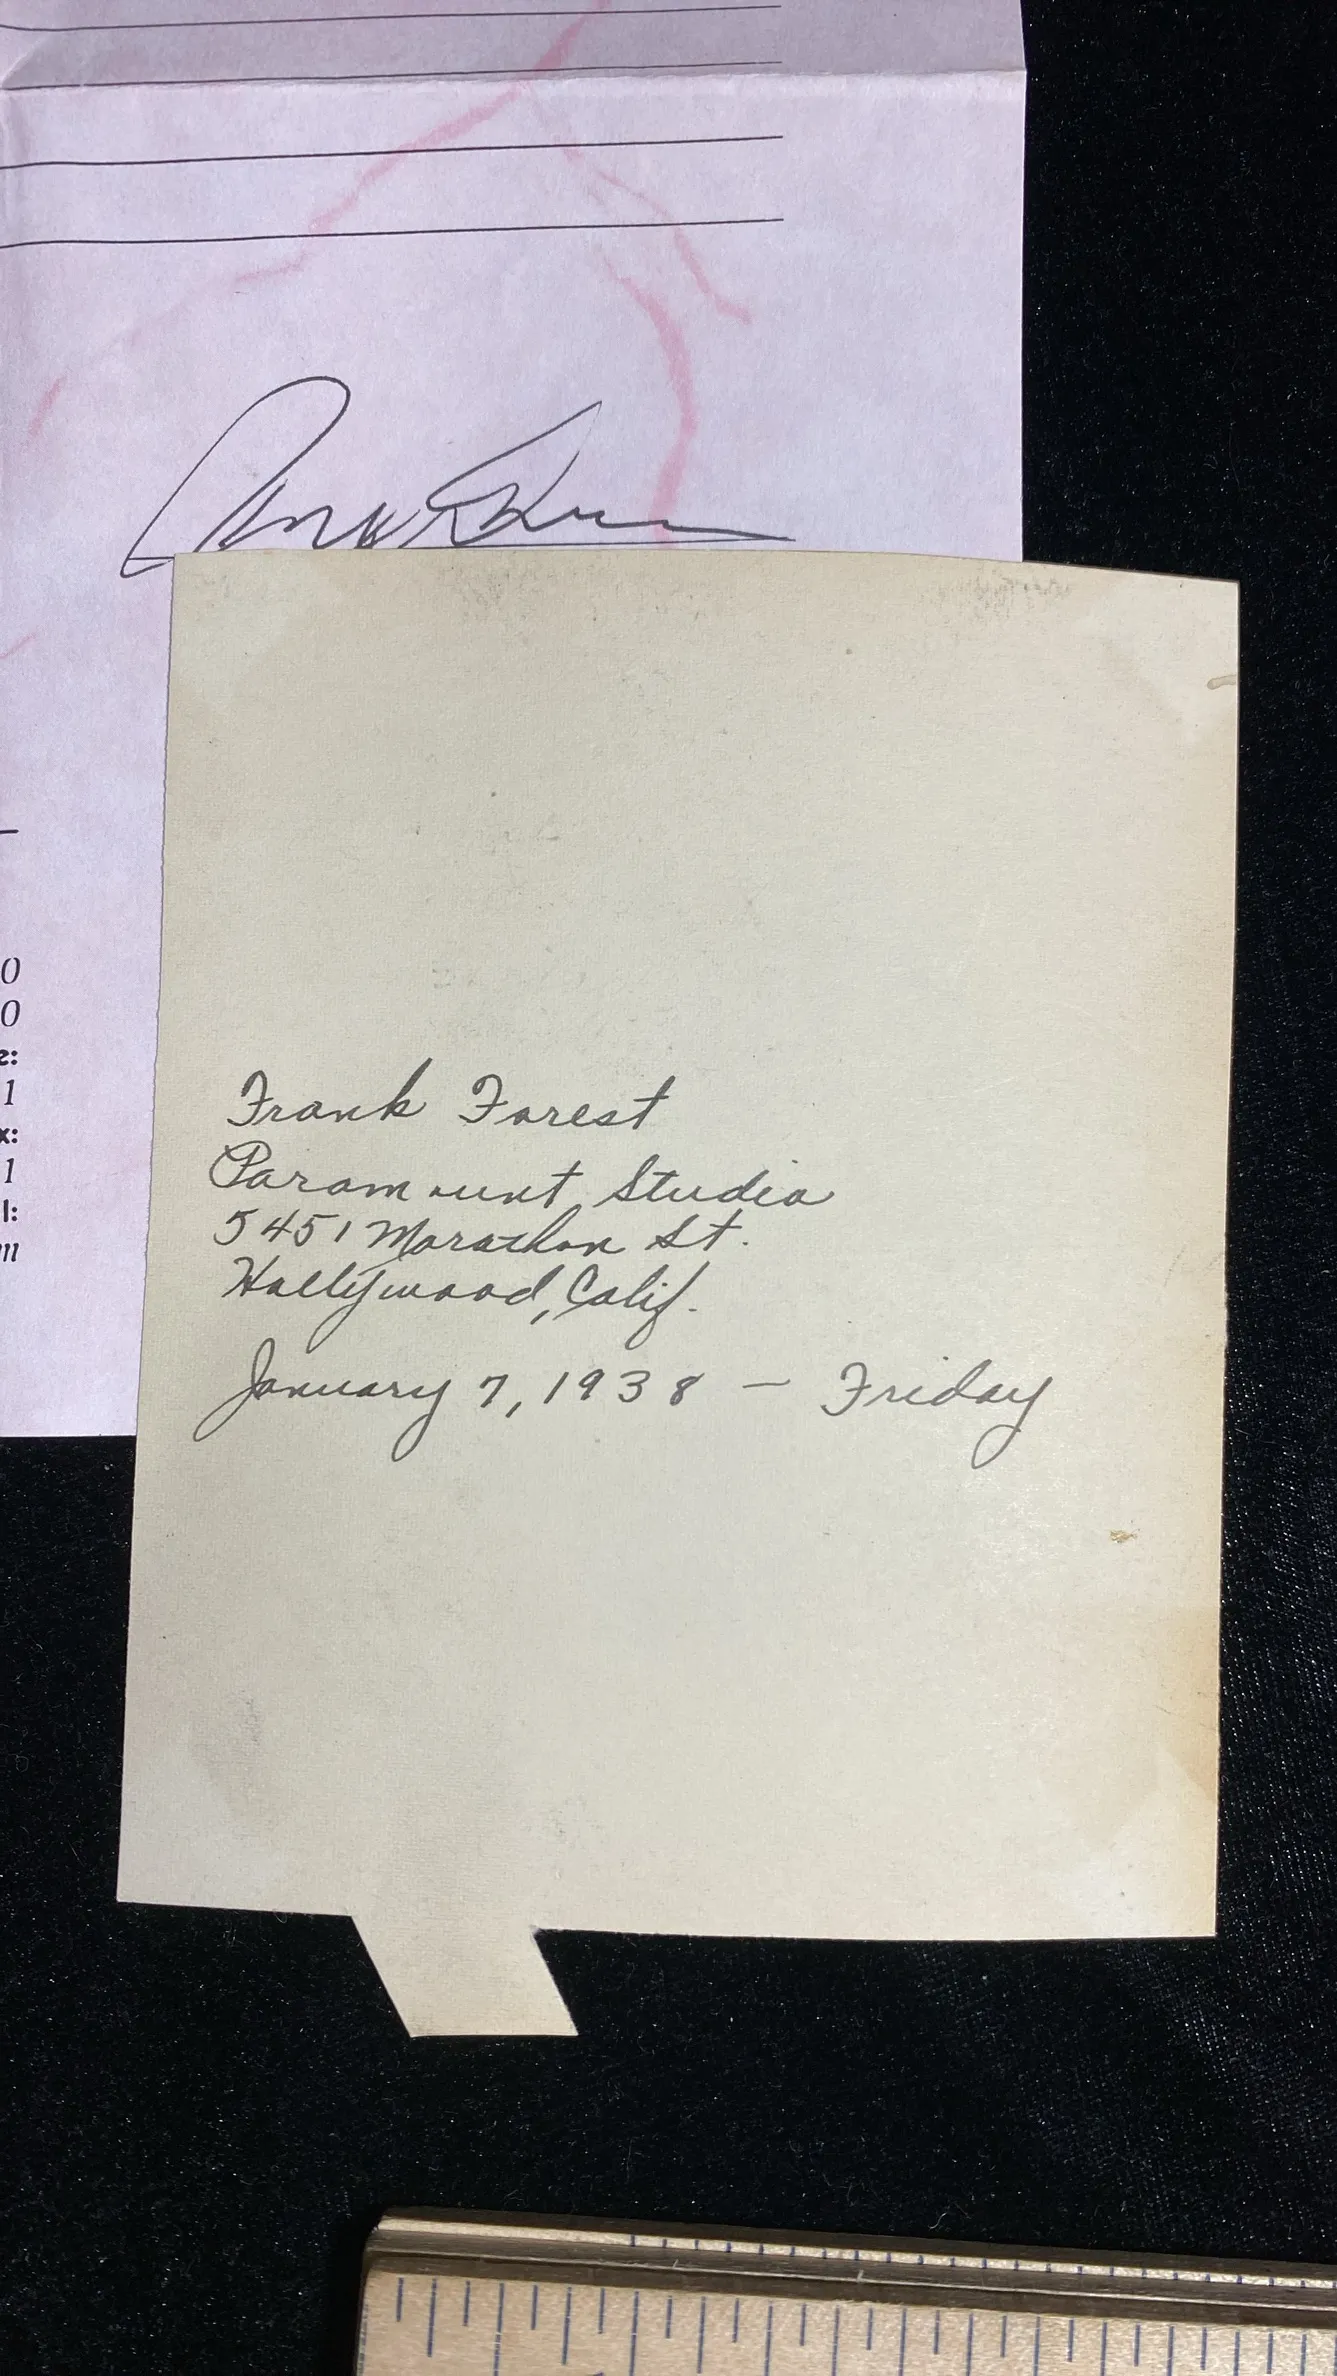 0
0
e:
1
x:
1
l:
m
Frank Forest
Paramount Studio
5451 Marathon St.
Hollywood, Calif.
January 7, 1938 — Friday